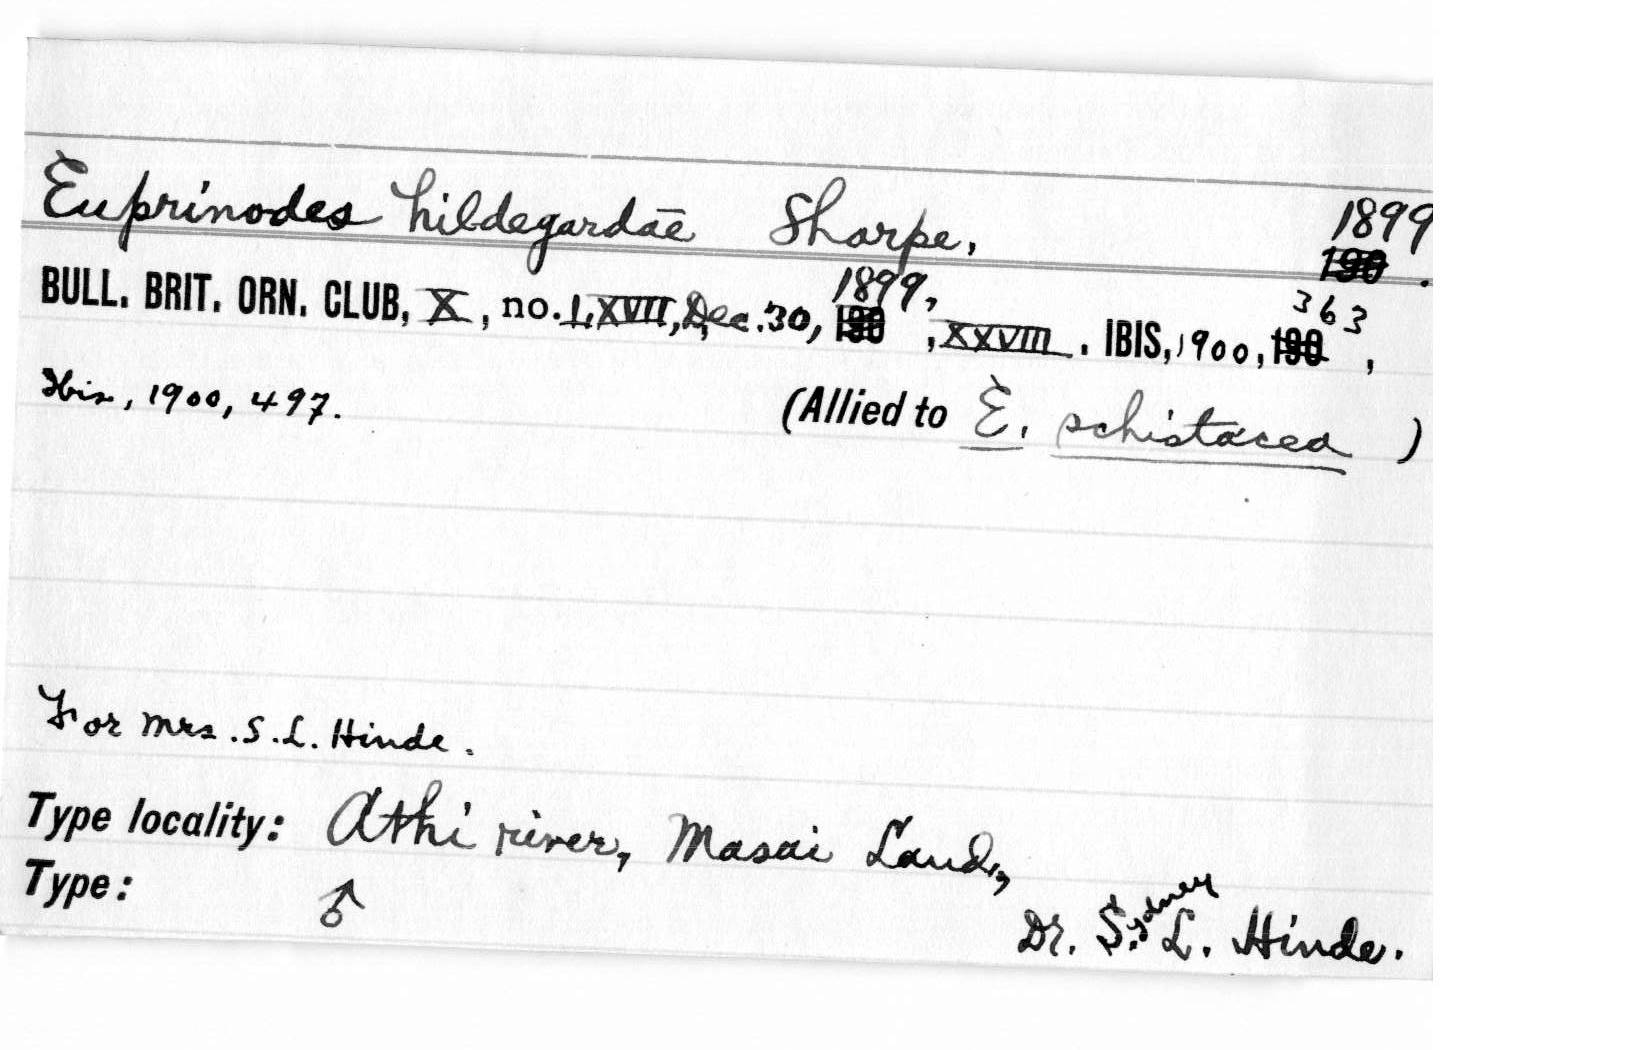 Euprinodes hildegardae Sharpe, 1899
190.
BULL. BRIT. ORN. CLUB, X, no. LXVII, Dec. 30, 1899, 190, XXVIII. IBIS, 1900, 190 363,
Ibis, 1900, 497. (Allied to E. schistacea )
For Mrs. S. L. Hinde.
Type locality: Athi river, Masai Land,
Type: ♂ Dr. Sydney L. Hinde.